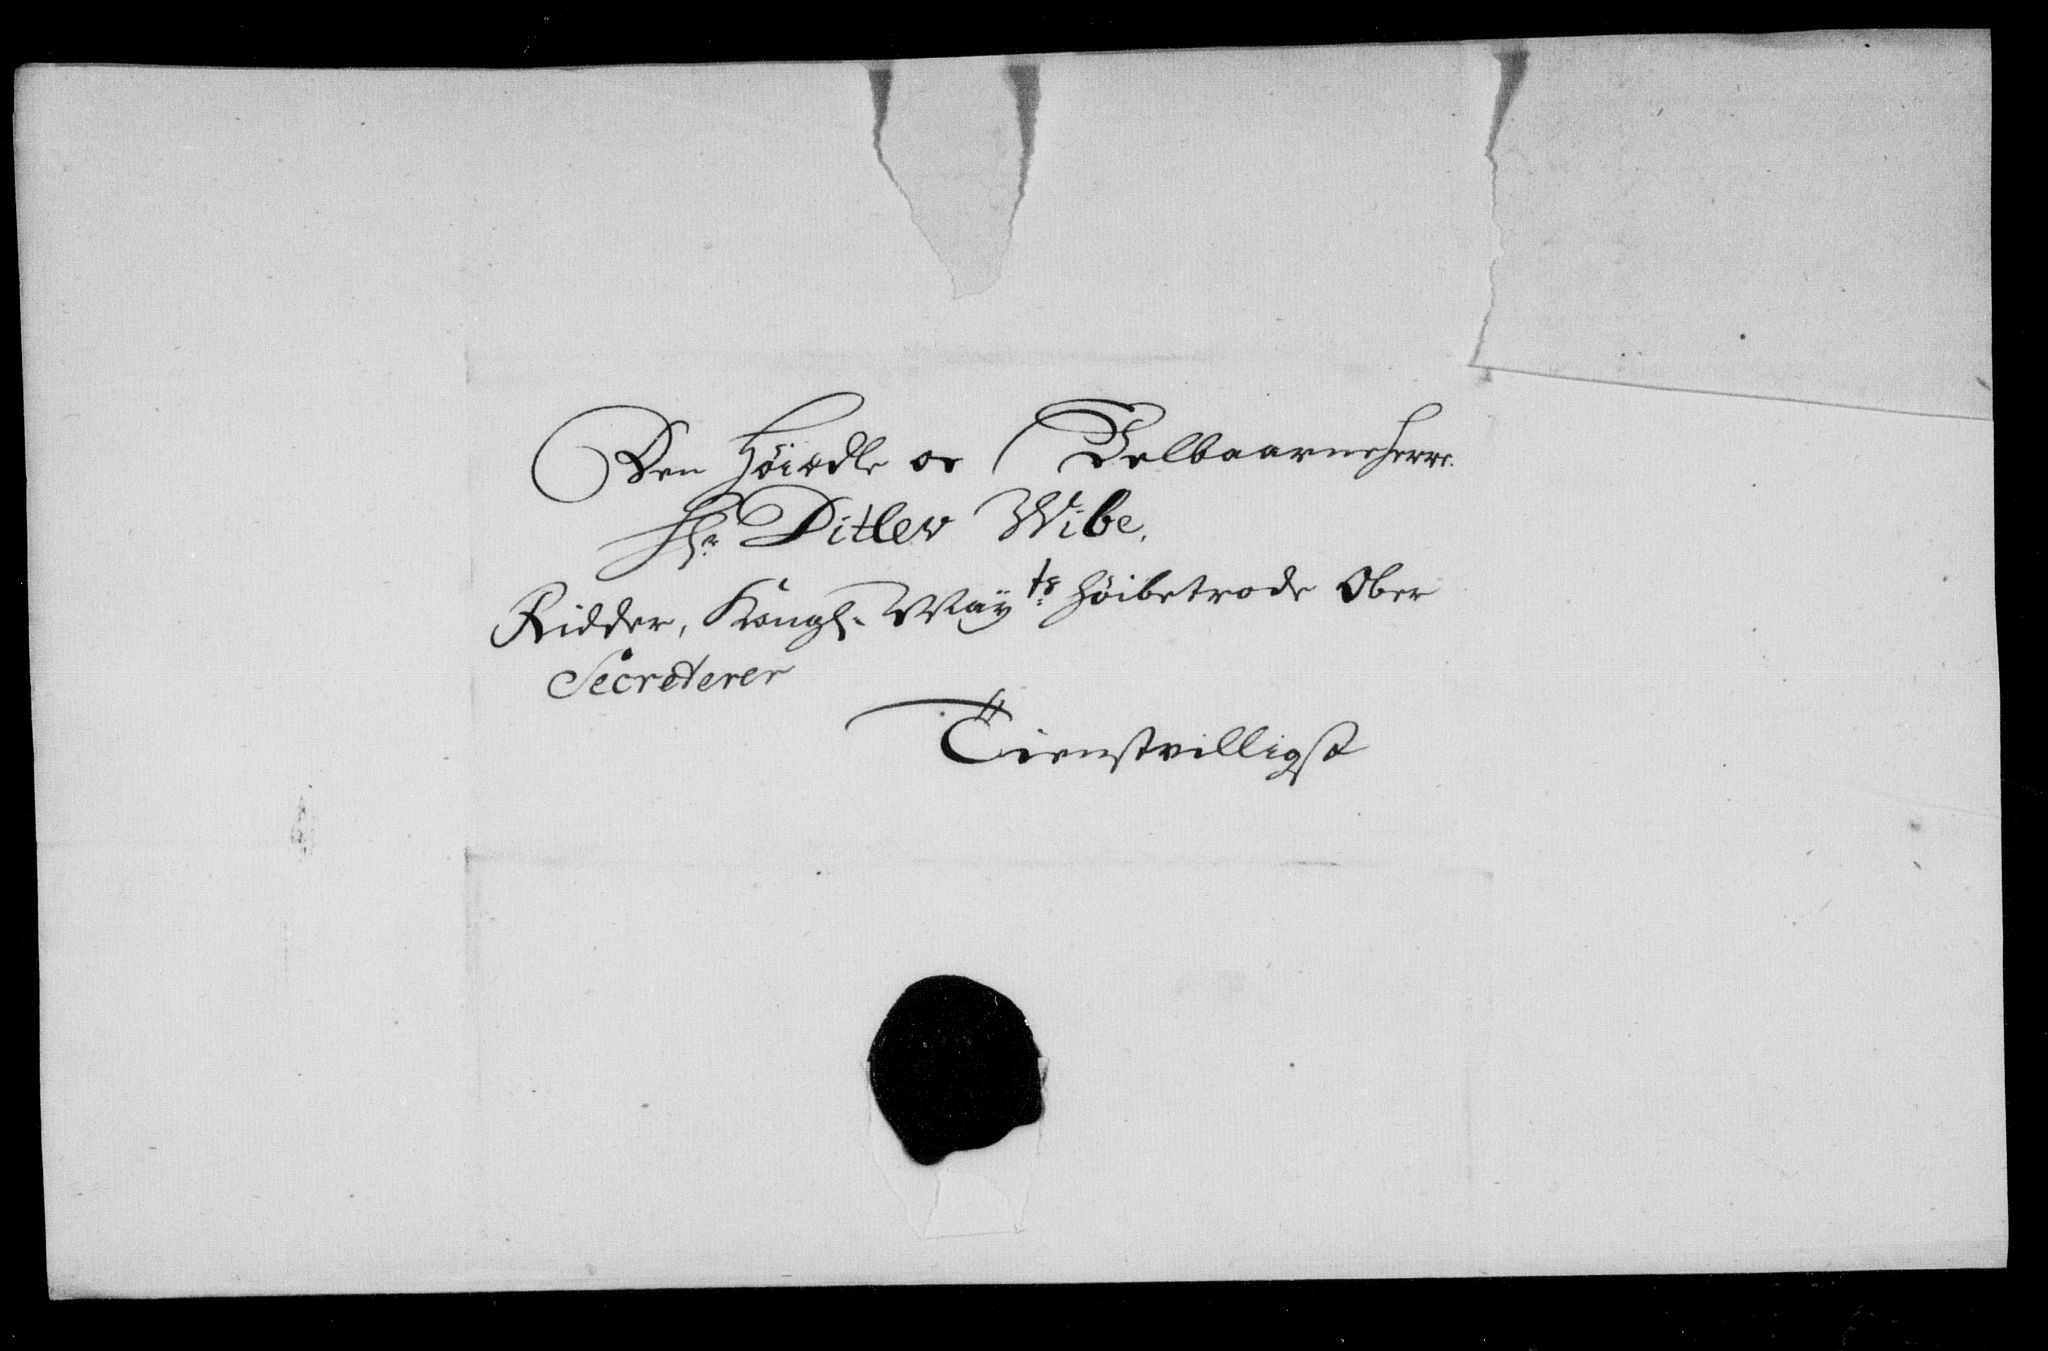 Den Høiædle oc Velbaarne Herre.
Hr. Ditlev Wibe.
Ridder, Kongl. Mayts: høibetrode Ober
Secreterer
Tienstvilligst